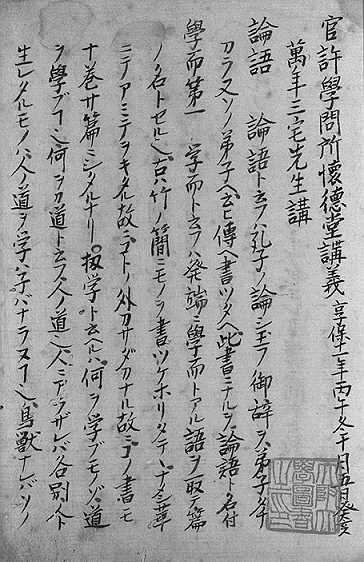 官許學問所懷德堂講義 享保十一年丙午冬十月五日癸亥
萬年三宅先生講
論語 論語ト云フハ孔子ノ論シ玉フ御辞ヲハ弟子
カラ又ソノ弟子ヘ云ヒ傳ヘ書ツタヘ此書ミナルヲ論語ト名付
學而第一 学而ト云フハ発端ニ學而トアル語ヲ取テ篇
ノ名トセル 古ハ竹ノ簡ニモノヲ書ツケホリタテ 革
ニテアミテヲキタル故 外 サダカナル故ニコノ書モ
十巻廿篇ニシタルナリ 扨学ト云ヘルハ何ヲ学ブモノゾ 道
ヲ學ブ 何ヲカ道ト云フ人ノ道 人ニアラザレバ各別人ト
生レタルモノハ人ノ道ヲ学ハ子バナラヌ 鳥獣ナレバソノ